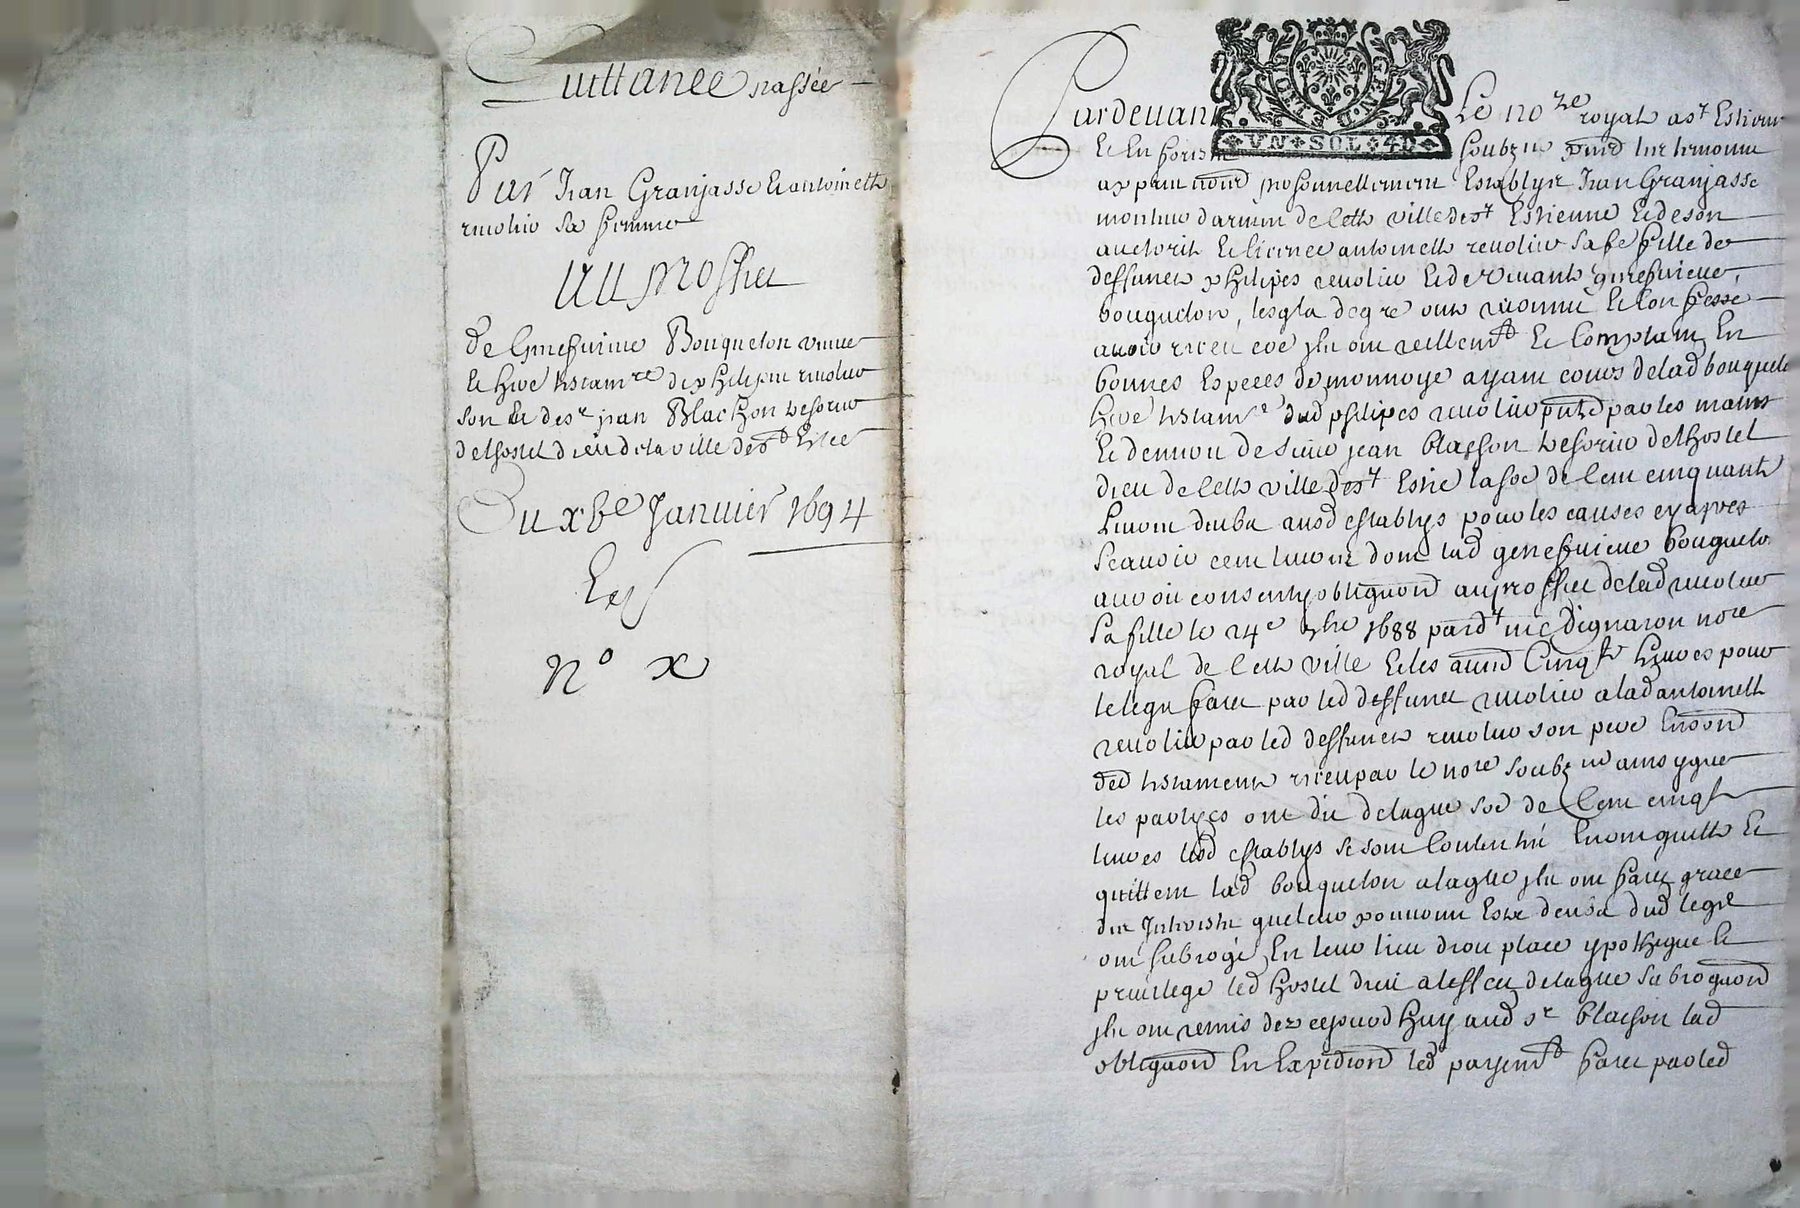 Quittance passée
Par Jean Granjasse et antoinette
reuolier sa femme
Au proffict
de Genefuieue Bouqueton veuue
et here testamre de philipes reuolier
son et de sr jean Blachon tesorier
de lhostel dieu de la ville de st Estee
Du xve Januier 1694
Exp
No x
Pardeuant le nore royal a st Estienne
et en forest soubzne
personnellement establys Jean Granjasse
de cette ville de st Estienne et de son
auctorité et licence antoinette reuolier sa fe fille de
deffunct philipes reuolier et de viuante genefuieue
bouqueton, lesqls de gre ont reconnu et confessé
auoir receu coe ils ont reellemt et comptant en
bonnes especes de monnoye ayant cours de lad bouqueton
here testamre dud philipes reuolier par les mains
et denier de sieur jean blachon tesorier de lhostel
dieu de cette ville de st Estie la soe de cent cinquante
liures deube ausd establys pour les causes cy apres
scauoir cent liures dont lad genefuieue bouqueton
auoit consenty obligaon au proffict de lad reuolier
sa fille le 24e 1688 pardt me Dignaron nore
royal de cette ville et les autres cinqte liures pour
le legat faict par led deffunct reuolier a lad antoinette
reuolier par led deffunct reuolier son pere en son
testament receu par le nore soubzne ainsy que
les partyes ont dit de laqlle soe de cent cinqte
liures lesd establys se sont contenté en ont quitté et
quittent lad bouqueton a laqlle ils ont faict grace
des Interestz quelle pouuoit estre deube dud legat
ont subrogé en leur lieu droit place ypotheque et
priuilege led hostel dieu a leffect de laqlle subrogaon
ils ont remis dez ce jourdhuy aud sr blachon lad
obligaon en expedion led payemt faict par led
VN SOL 4D